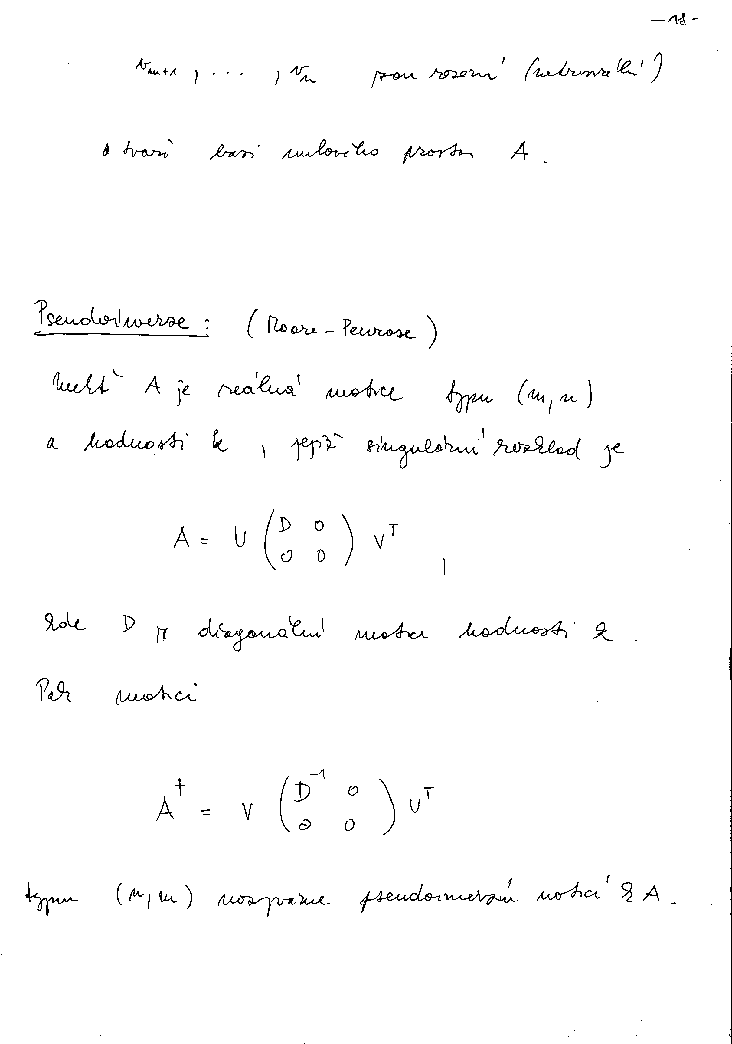 -18-
v_{m+1}, ..., v_n jsou řešení (netriviální)
a tvoří basi nulového prostoru A.
Pseudoinverse: (Moore-Penrose)
Nechť A je reálná matice typu (m,n)
a hodnosti k, jejíž singulární rozklad je
A = U \begin{pmatrix} D & 0 \\ 0 & 0 \end{pmatrix} V^T,
kde D je diagonální matice hodnosti k.
Pak matici
A^+ = V \begin{pmatrix} D^{-1} & 0 \\ 0 & 0 \end{pmatrix} U^T
typu (n,m) nazýváme pseudoinversní maticí k A.